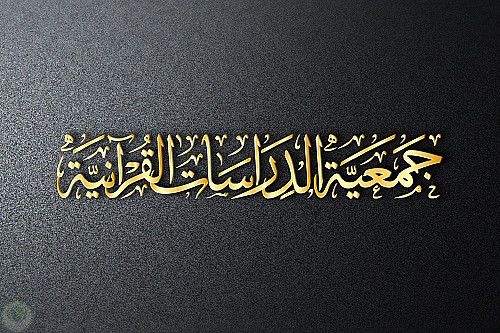 جَمْعِيَّة الدِّرَاسَات القُرْآنِيَّة